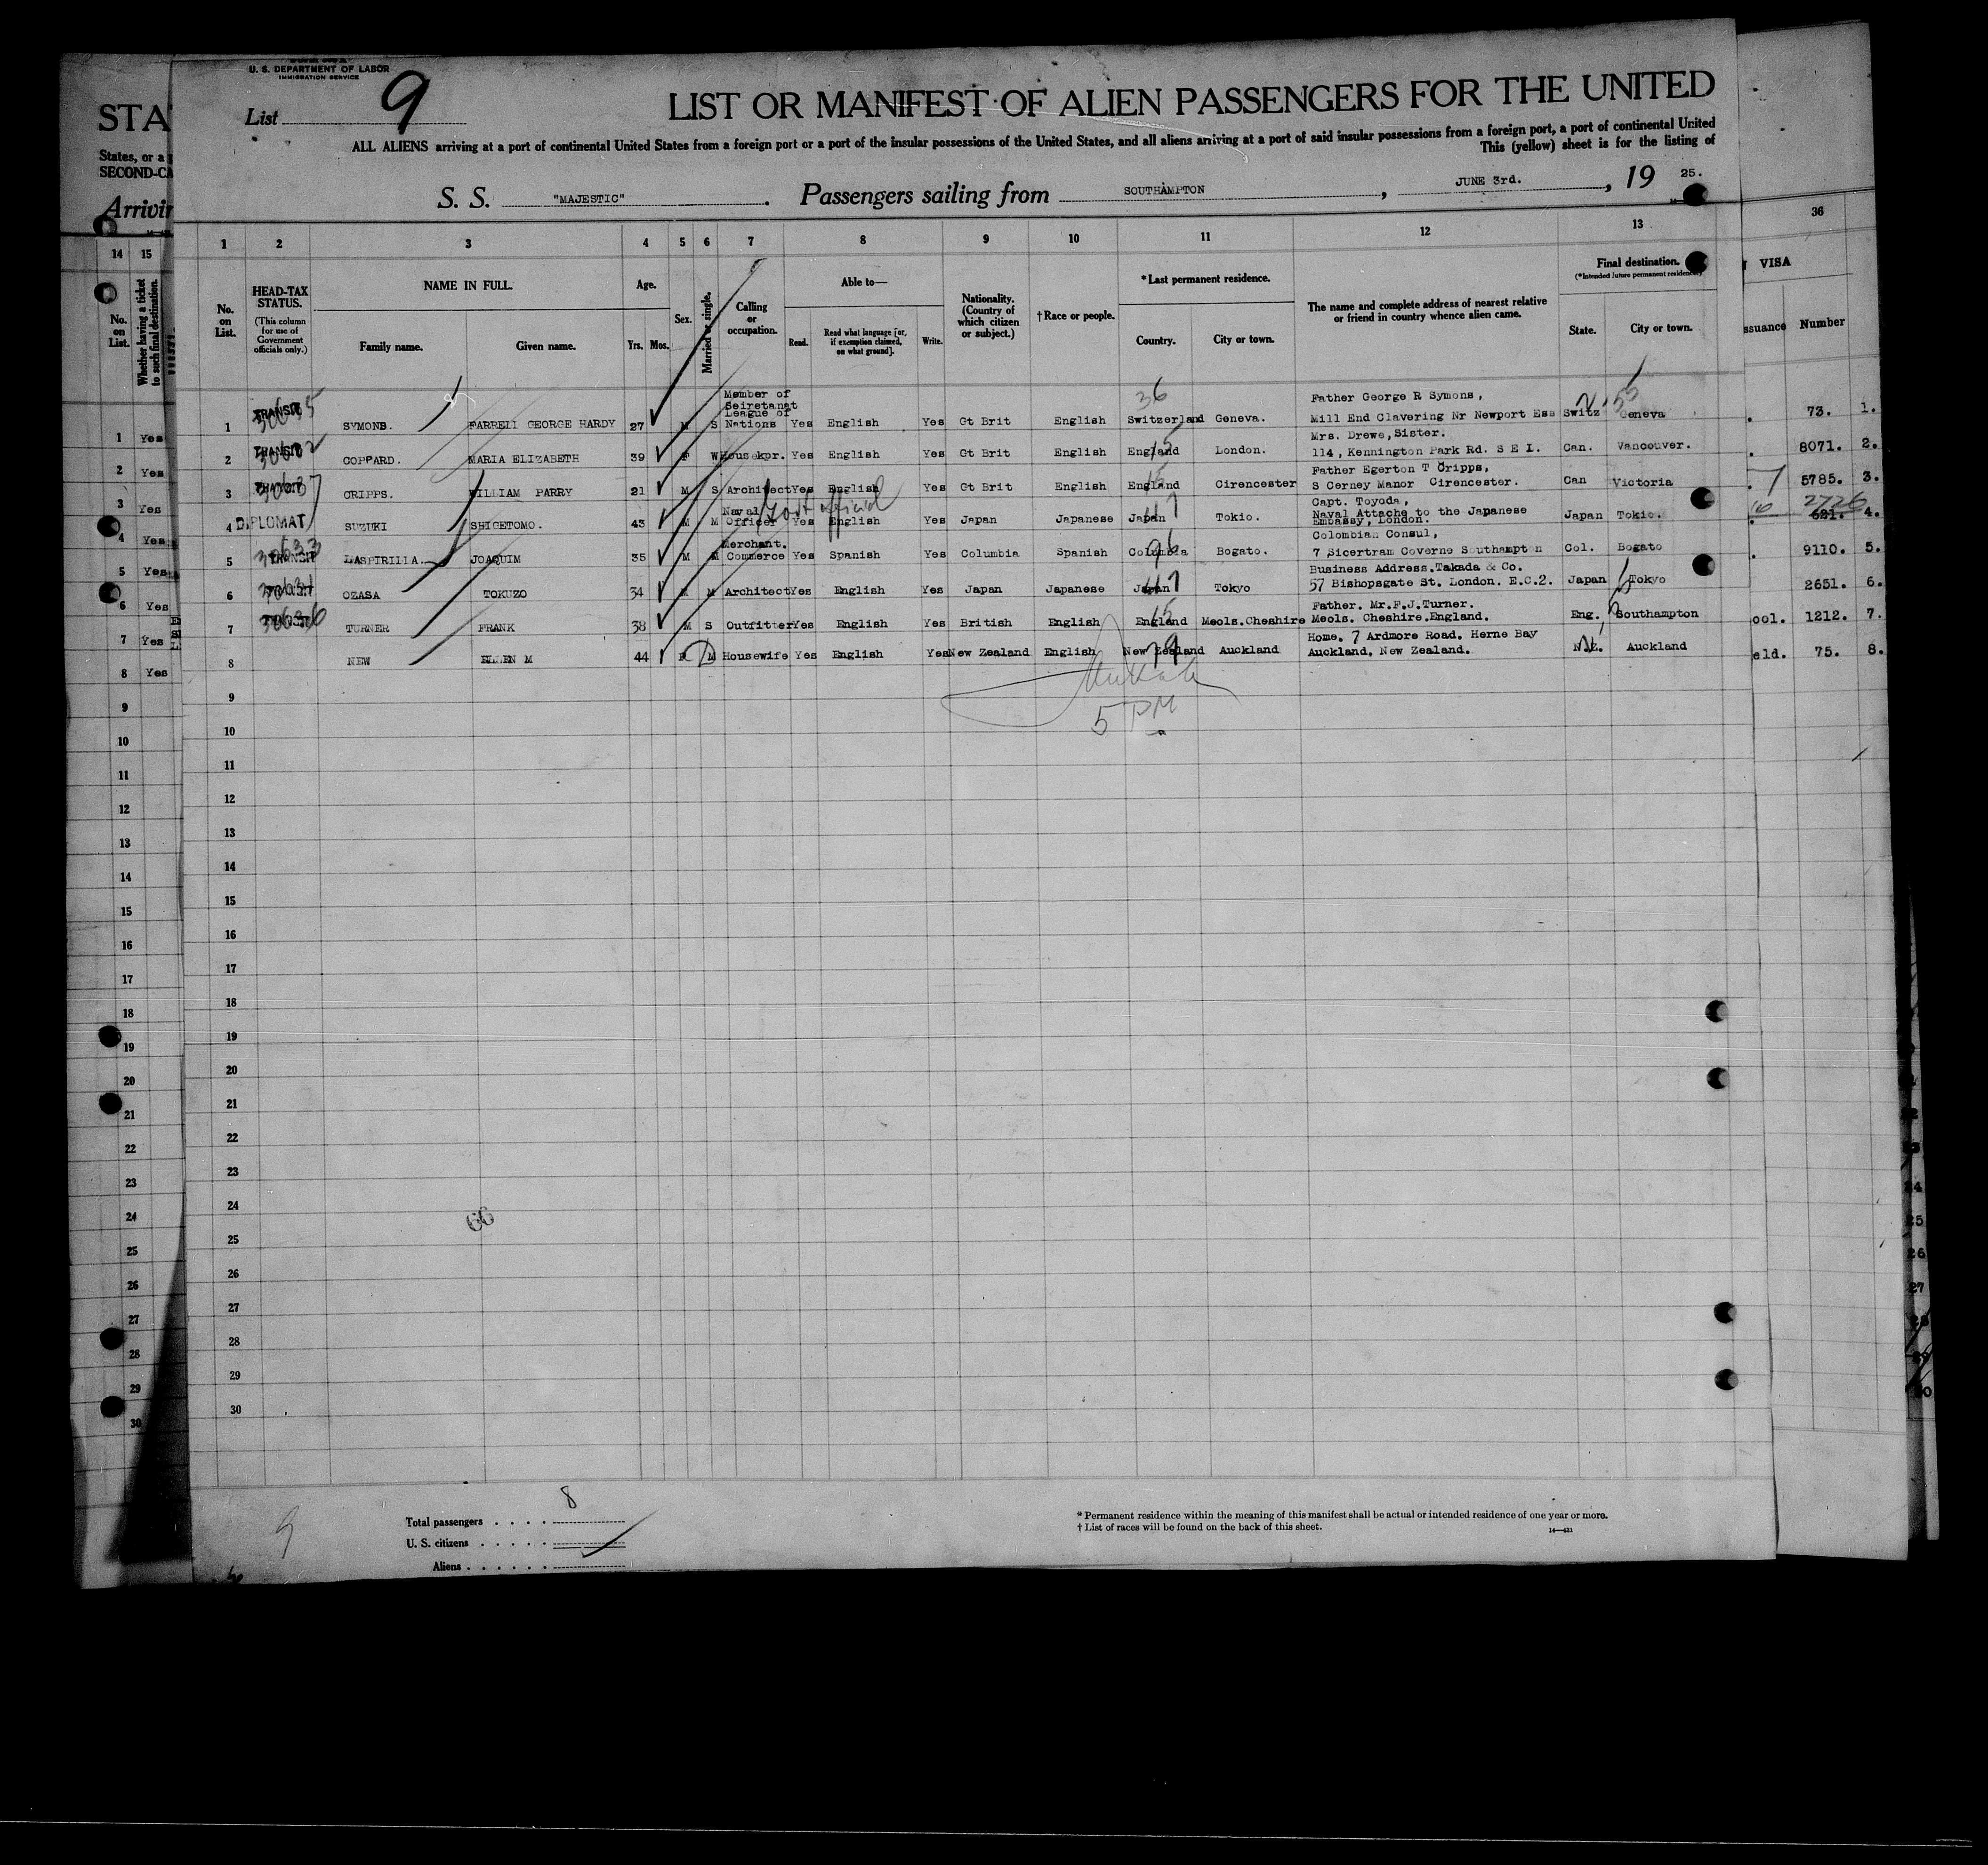 U. S. DEPARTMENT OF LABOR
IMMIGRATION SERVICE
List 9
LIST OR MANIFEST OF ALIEN PASSENGERS FOR THE UNITED
ALL ALIENS arriving at a port of continental United States from a foreign port or a port of the insular possessions of the United States, and all aliens arriving at a port of said insular possessions from a foreign port, a port of continental United
This (yellow) sheet is for the listing of
S. S. "MAJESTIC" . Passengers sailing from SOUTHAMPTON , JUNE 3rd. , 19 25.
STA
States, or a
SECOND-CA
Arrivin
14 15
No. on List.
Whether having a ticket to such final destination.
1 2 3 4 5 6 7 8 9 10 11 12 13
36
No. on List.
HEAD-TAX STATUS.
(This column for use of Government officials only.)
NAME IN FULL.
Family name. Given name.
Age.
Yrs. Mos.
Sex.
Married or single.
Calling or occupation.
Able to—
Read. Read what language [or, if exemption claimed, on what ground]. Write.
Nationality. (Country of which citizen or subject.)
†Race or people.
*Last permanent residence.
Country. City or town.
The name and complete address of nearest relative or friend in country whence alien came.
Final destination.
(*Intended future permanent residence.)
State. City or town.
VISA
ssuance Number
1 TRANSIT SYMONS. FARRELL GEORGE HARDY 27 M S Member of Seiretanat League of Nations Yes English Yes Gt Brit English Switzerland Geneva. Father George R Symons, Mill End Clavering Nr Newport Ess Switz Geneva 73. 1.
2 TRANSIT COPPARD. MARIA ELIZABETH 39 F W Housekpr. Yes English Yes Gt Brit English England London. Mrs. Drewe, Sister. 114, Kennington Park Rd. S E 1. Can. Vancouver. 8071. 2.
3 TRANSIT CRIPPS. WILLIAM PARRY 21 M S Architect Yes English Yes Gt Brit English England Cirencester Father Egerton T Cripps, S Cerney Manor Cirencester. Can Victoria 5785. 3.
4 DIPLOMAT SUZUKI SHIGETOMO. 43 M M Naval Officer Govt official Yes English Yes Japan Japanese Japan Tokio. Capt. Toyoda, Naval Attache to the Japanese Embassy, London. Japan Tokio. 2726 621. 4.
5 TRANSIT LASPIRILLA. JOAQUIM 35 M M Merchant. Commerce Yes Spanish Yes Columbia Spanish Columbia Bogato. Colombian Consul, 7 Sicertram Coverne Southampton Col. Bogato 9110. 5.
6 OZASA TOKUZO 34 M M Architect Yes English Yes Japan Japanese Japan Tokyo Business Address.Takada & Co. 57 Bishopsgate St. London. E.C.2. Japan Tokyo 2651. 6.
7 TURNER FRANK 38 M S Outfitter Yes English Yes British English England Meols.Cheshire Father. Mr.F.J.Turner. Meols. Cheshire.England. Eng. Southampton ool. 1212. 7.
8 NEW ELLEN M 44 F M Housewife Yes English Yes New Zealand English New Zealand Auckland Home. 7 Ardmore Road. Herne Bay Auckland. New Zealand. N.Z. Auckland eld. 75. 8.
5 PM
1 Yes
2 Yes
3 Yes
4 Yes
5 Yes
6 Yes
7 Yes
8 Yes
9
10
11
12
13
14
15
16
17
18
19
20
21
22
23
24
25
26
27
28
29
30
66
9
Total passengers . . . . 8
U. S. citizens . . . . .
Aliens . . . . . .
* Permanent residence within the meaning of this manifest shall be actual or intended residence of one year or more.
† List of races will be found on the back of this sheet.